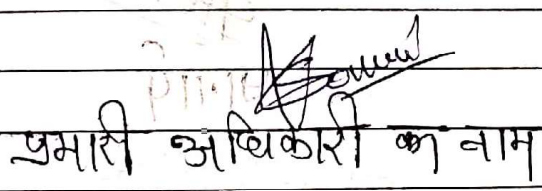 प्रभारी अधिकारी का नाम